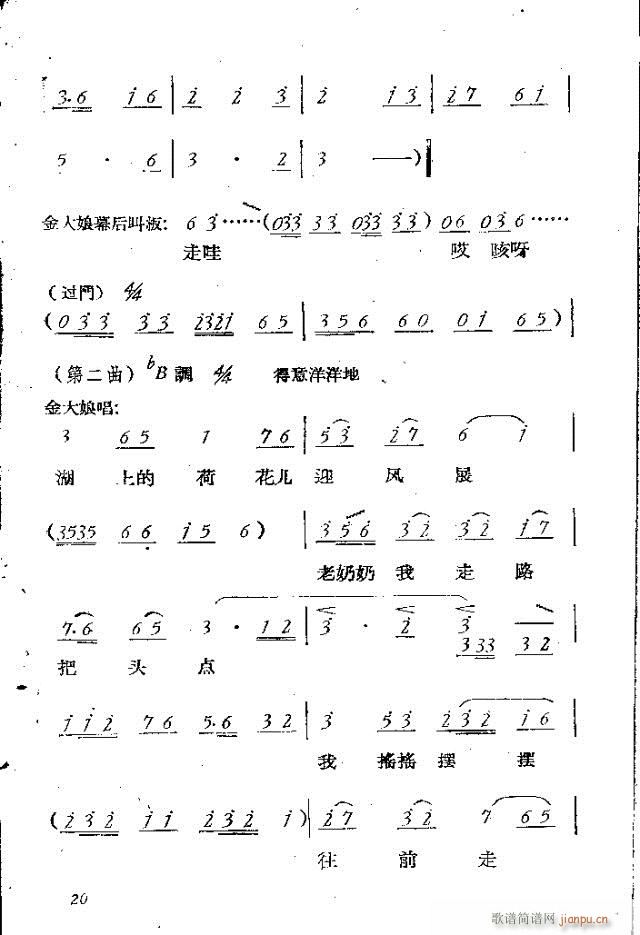 3·6 i6 | 2̇ 2̇ 3̇ | 2̇ i3̇ | 2̇7 6i |
5 · 6 | 3̇ · 2̇ | 3̇ —)
金大娘幕后叫板: 6 3̇ ……(03̇3̇ 3̇3̇ 03̇3̇ 3̇3̇) 06 03̇6 ……
走哇 哎 咳呀
(过門) 4/4
(0 3̇3̇ 3̇3̇ 2̇3̇2̇i 65 | 356 60 0i 65) |
(第二曲) bB調 4/4 得意洋洋地
金大娘唱:
3 65 1 76 | 53̇ 2̇7 6 i |
湖 上的 荷 花儿 迎 风 展
(3535 66 i5 6) | 3̇56 3̇2̇ 3̇2̇ i7
老奶奶 我 走 路
7·6 65 3 · 12 | 3̇ · 2̇ 3̇ 333 32 |
把 头 点
ii2̇ 76 5·6 32 | 3̇ 53̇ 2̇3̇2̇ i6 |
我 搖搖 摆 摆
(2̇3̇2̇ ii 2̇3̇2̇ i) | 2̇7 3̇2̇ 7 65 |
往 前 走
20
歌谱简谱网
jianpu.cn